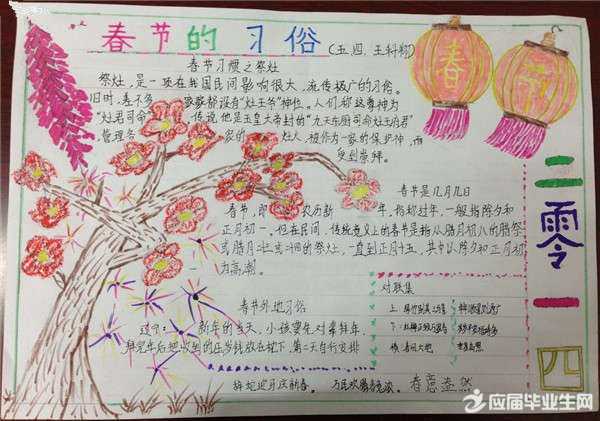 春节的习俗(五.四.王科翔)
春节习惯之祭灶
祭灶,是一项在我国民间影响很大,流传极广的习俗。
旧时,差不多家家都设有“灶王爷”神位。人们称这尊神为
“灶君司命”传说他是玉皇大帝封的“九天东厨司命灶王府君”
管理各家的灶火,被作为一家的保护神,而
受到崇拜。
春节是几月几日
春节,即农历新年,俗称过年,一般指除夕和
正月初一。但在民间,传统意义上的春节是指从腊月初八的腊祭
或腊月二十三或二十四的祭灶,一直到正月十五,其中以除夕和正月初一
为高潮。
春节外地习俗
新年的当天,小孩要先对辈拜年,
拜完年后把收到的压岁钱放在枕下,第二天自行安排
对联集
上:
下:
横:春回大地
辞蛇迎马庆新春。
春意盎然
春
节
二
零
一
四
应届毕业生网